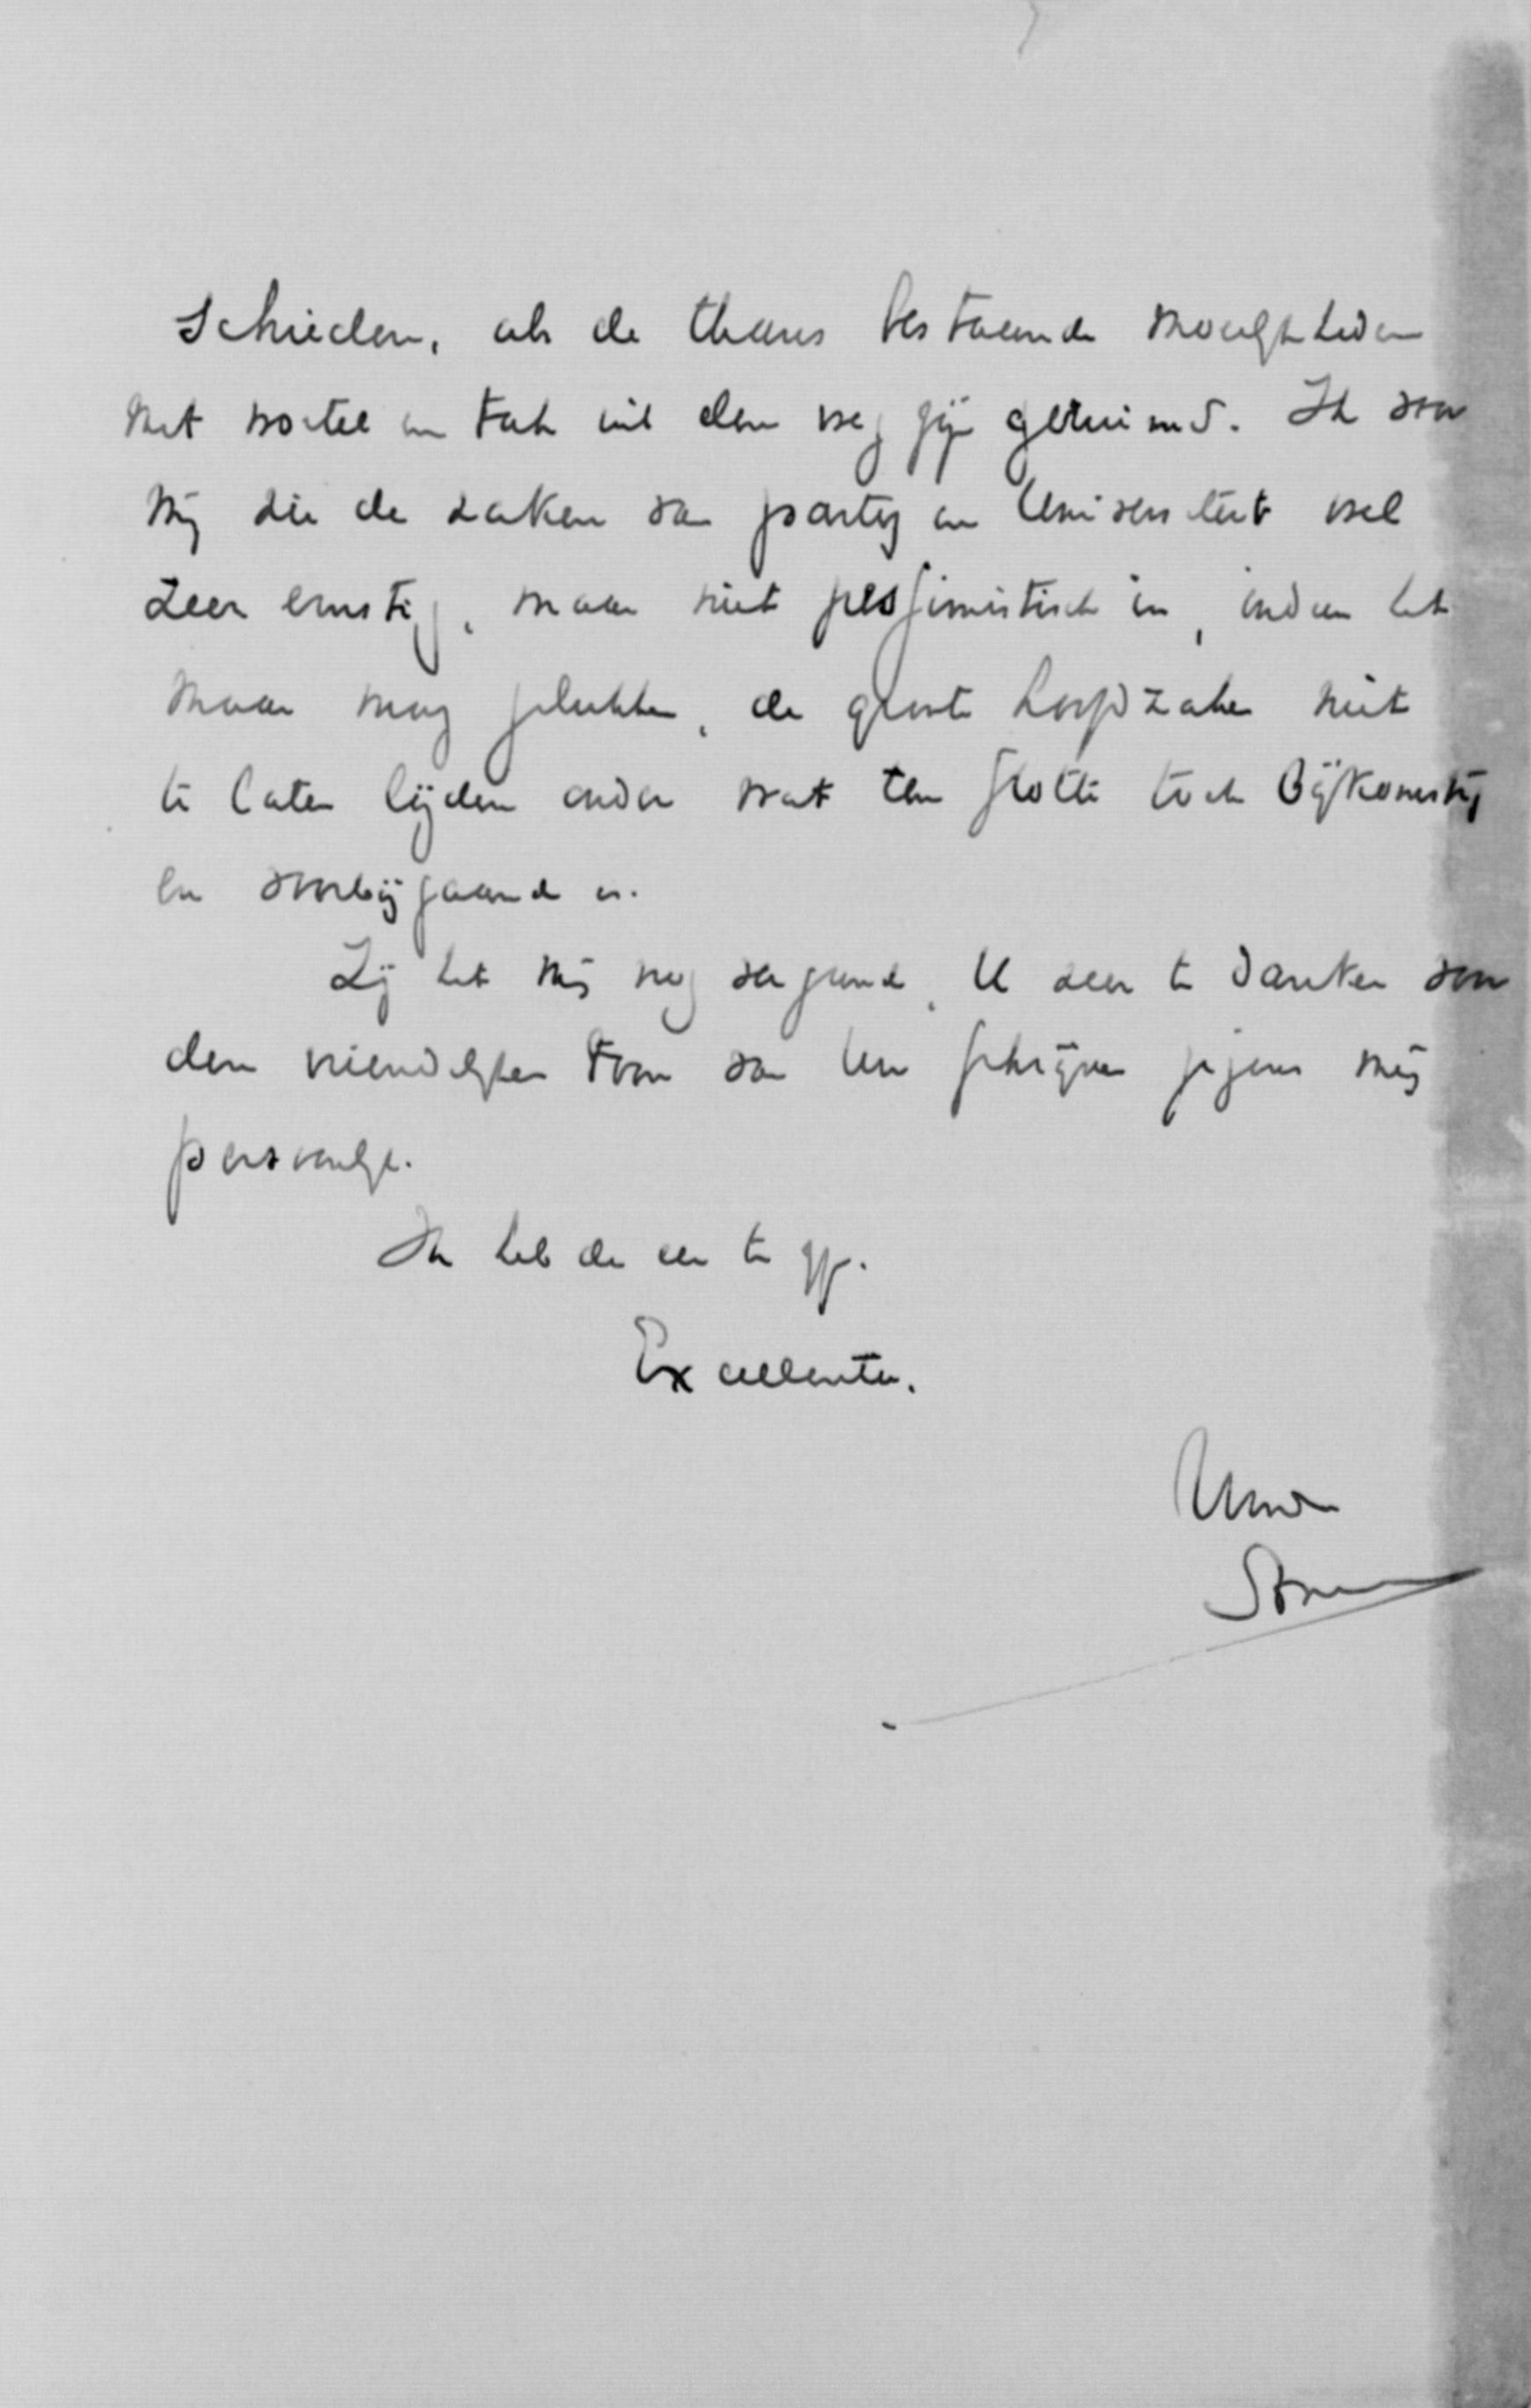 schieden, als de thans bestaande moeilijkheden
met wortel en tak uit den weg zijn geruimd. Ik voor
mij zie de zaken van partij en Universiteit wel
zeer ernstig, maar niet pessimistisch in, indien het
maar mag gelukken, de groote hoofdzaken niet
te laten lijden onder wat ten slotte toch bijkomstig
en voorbijgaand is.
Zij het mij nog vergund, U zeer te danken voor
den vriendelijken toon van Uw schrijven jegens mij
persoonlijk.
Ik heb de eer te zijn.
Excellentie,